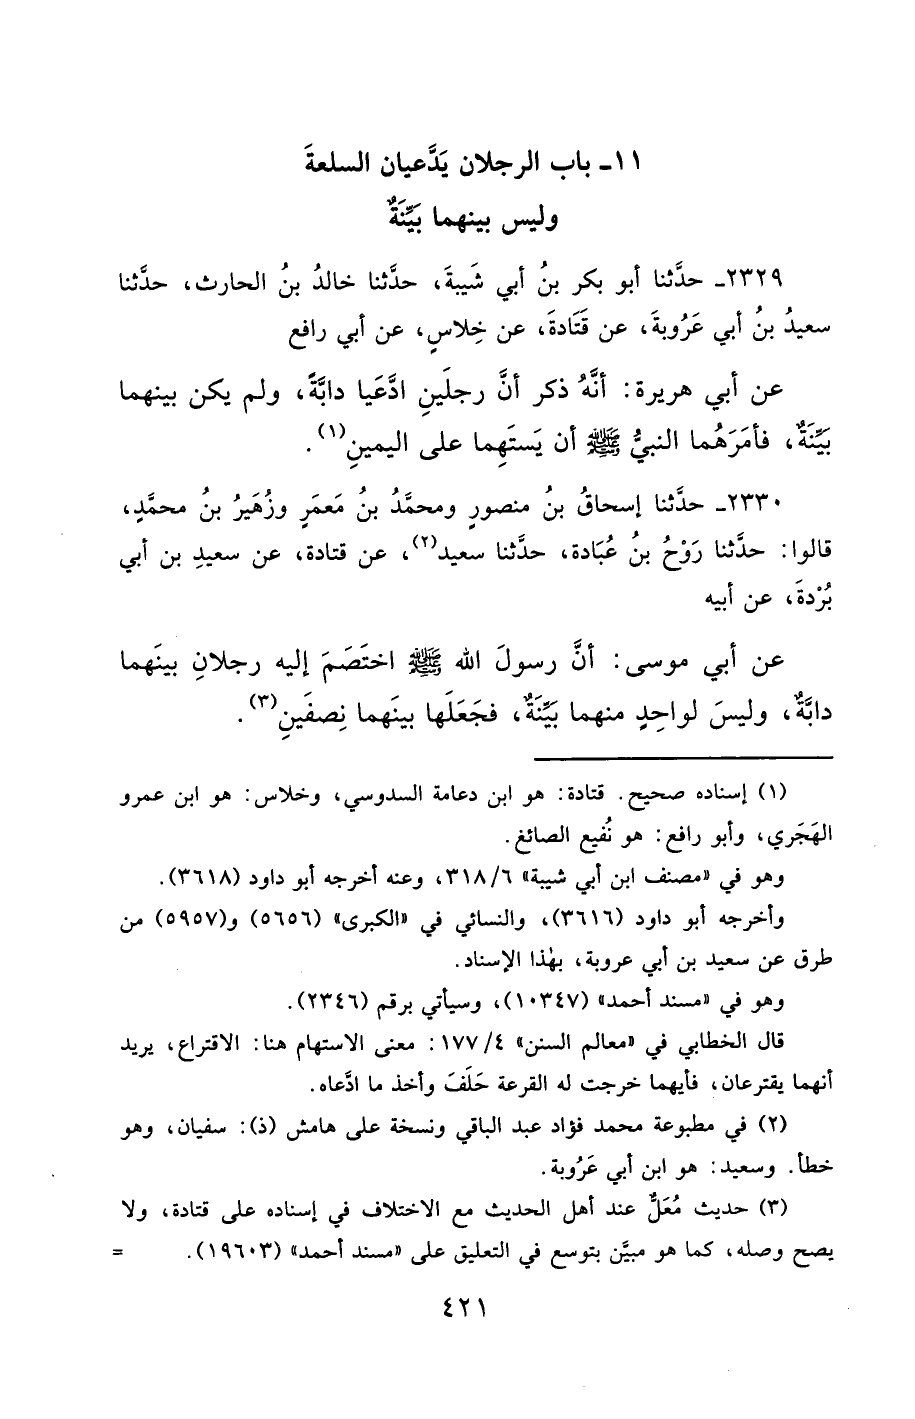 ١١ـ باب الرجلان يَدَّعيان السلعةَ
وليس بينهما بَيِّنَةٌ
٢٣٢٩ـ حدَّثنا أبو بكر بنُ أبي شَيبةَ، حدَّثنا خالدُ بنُ الحارث، حدَّثنا
سعيدُ بنُ أبي عَرُوبةَ، عن قَتَادةَ، عن خِلاسٍ، عن أبي رافع
عن أبي هريرة: أنَّهُ ذكر أنَّ رجلَينِ ادَّعَيا دابَّةً، ولم يكن بينهما
بَيِّنَةٌ، فأمَرَهُما النبيُّ ﷺ أن يَستَهِما على اليمينِ(١).
٢٣٣٠ـ حدَّثنا إسحاقُ بنُ منصورٍ ومحمَّدُ بنُ مَعمَرٍ وزُهَيرُ بنُ محمَّدٍ،
قالوا: حدَّثنا رَوْحُ بنُ عُبَادة، حدَّثنا سعيد(٢)، عن قتادة، عن سعيدِ بن أبي
بُرْدةَ، عن أبيه
عن أبي موسى: أنَّ رسولَ الله ﷺ اختَصَمَ إليه رجلانِ بينَهما
دابَّةٌ، وليسَ لواحِدٍ منهما بَيِّنَةٌ، فجَعَلَها بينَهما نِصفَينِ(٣).
(١) إسناده صحيح. قتادة: هو ابن دعامة السدوسي، وخلاس: هو ابن عمرو
الهَجَري، وأبو رافع: هو نُفيع الصائغ.
وهو في «مصنف ابن أبي شيبة» ٣١٨/٦، وعنه أخرجه أبو داود (٣٦١٨).
وأخرجه أبو داود (٣٦١٦)، والنسائي في «الكبرى» (٥٦٥٦) و(٥٩٥٧) من
طرق عن سعيد بن أبي عروبة، بهٰذا الإسناد.
وهو في «مسند أحمد» (١٠٣٤٧)، وسيأتي برقم (٢٣٤٦).
قال الخطابي في «معالم السنن» ١٧٧/٤: معنى الاستهام هنا: الاقتراع، يريد
أنهما يقترعان، فأيهما خرجت له القرعة حَلَفَ وأخذ ما ادَّعاه.
(٢) في مطبوعة محمد فؤاد عبد الباقي ونسخة على هامش (ذ): سفيان، وهو
خطأ. وسعيد: هو ابن أبي عَرُوبة.
(٣) حديث مُعَلٌّ عند أهل الحديث مع الاختلاف في إسناده على قتادة، ولا
يصح وصله، كما هو مبيَّن بتوسع في التعليق على «مسند أحمد» (١٩٦٠٣). =
٤٢١